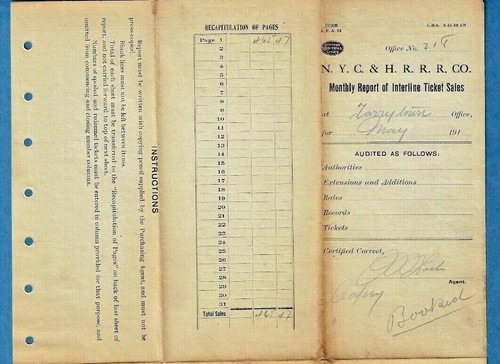 INSTRUCTIONS
Report must be written with copying pencil supplied by the Purchasing Agent, and must not be
press-copied.
Blank lines must not be left between items.
Total of each sheet must be transferred to the "Recapitulation of Pages" on back of last sheet of
report, and not carried forward to top of next sheet.
Numbers of spoiled and redeemed tickets must be entered in column provided for that purpose, and
omitted from commencing and closing number columns.
RECAPITULATION OF PAGES
Page 1 468 47
2
3
4
5
6
7
8
9
10
11
12
13
14
15
16
17
18
19
20
21
22
23
24
25
26
27
28
29
30
31
Total Sales 468 47
FORM
NEW YORK CENTRAL LINES
Office No. 215
N. Y. C. & H. R. R. R. CO.
Monthly Report of Interline Ticket Sales
at Tarrytown Office,
for May 191
AUDITED AS FOLLOWS:
Authorities
Extensions and Additions
Rates
Records
Tickets
Certified Correct,
Agent.
Booked